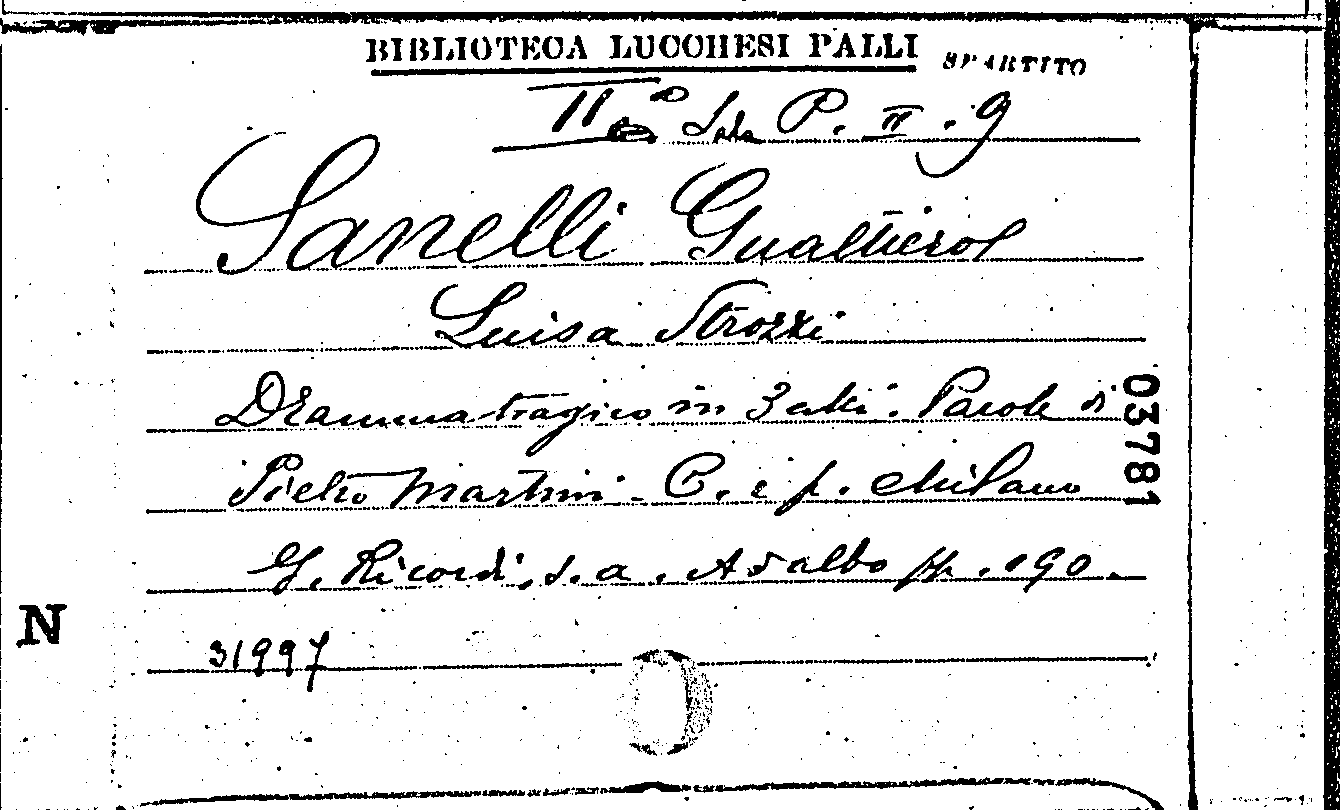 BIBLIOTECA LUCCHESI PALLI SPARTITO
IIª Sala P. II. 9
Sanelli Gualtiero
Luisa Strozzi
Dramma tragico in 3 atti. Parole di
Pietro Martini - C. e p. Milano
G. Ricordi, s. a. Ad albo pp. 190.
31997
03781
N